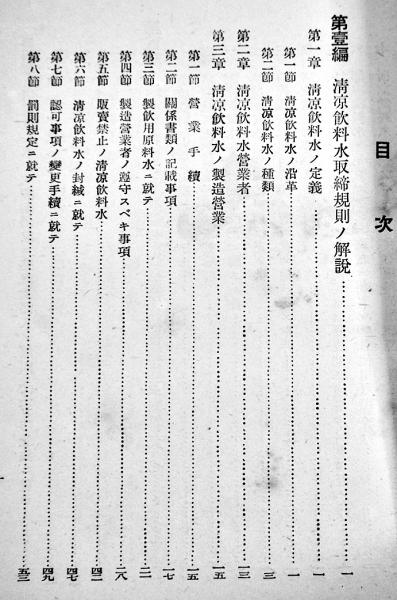 目次
第壹編 淸凉飮料水取締規則ノ解說……一
第一章 淸凉飮料水ノ定義……一
第一節 淸凉飮料水ノ沿革……一
第二節 淸凉飮料水ノ種類……三
第二章 淸凉飮料水營業者……三
第三章 淸凉飮料水ノ製造營業……一五
第一節 營業手續……一五
第二節 關係書類ノ記載事項……一七
第三節 製飮用原料水ニ就テ……二一
第四節 製造營業者ノ遵守スベキ事項……二八
第五節 販賣禁止ノ淸凉飮料水……四二
第六節 淸凉飮料水ノ封緘ニ就テ……四七
第七節 認可事項ノ變更手續ニ就テ……四九
第八節 罰則規定ニ就テ……五三